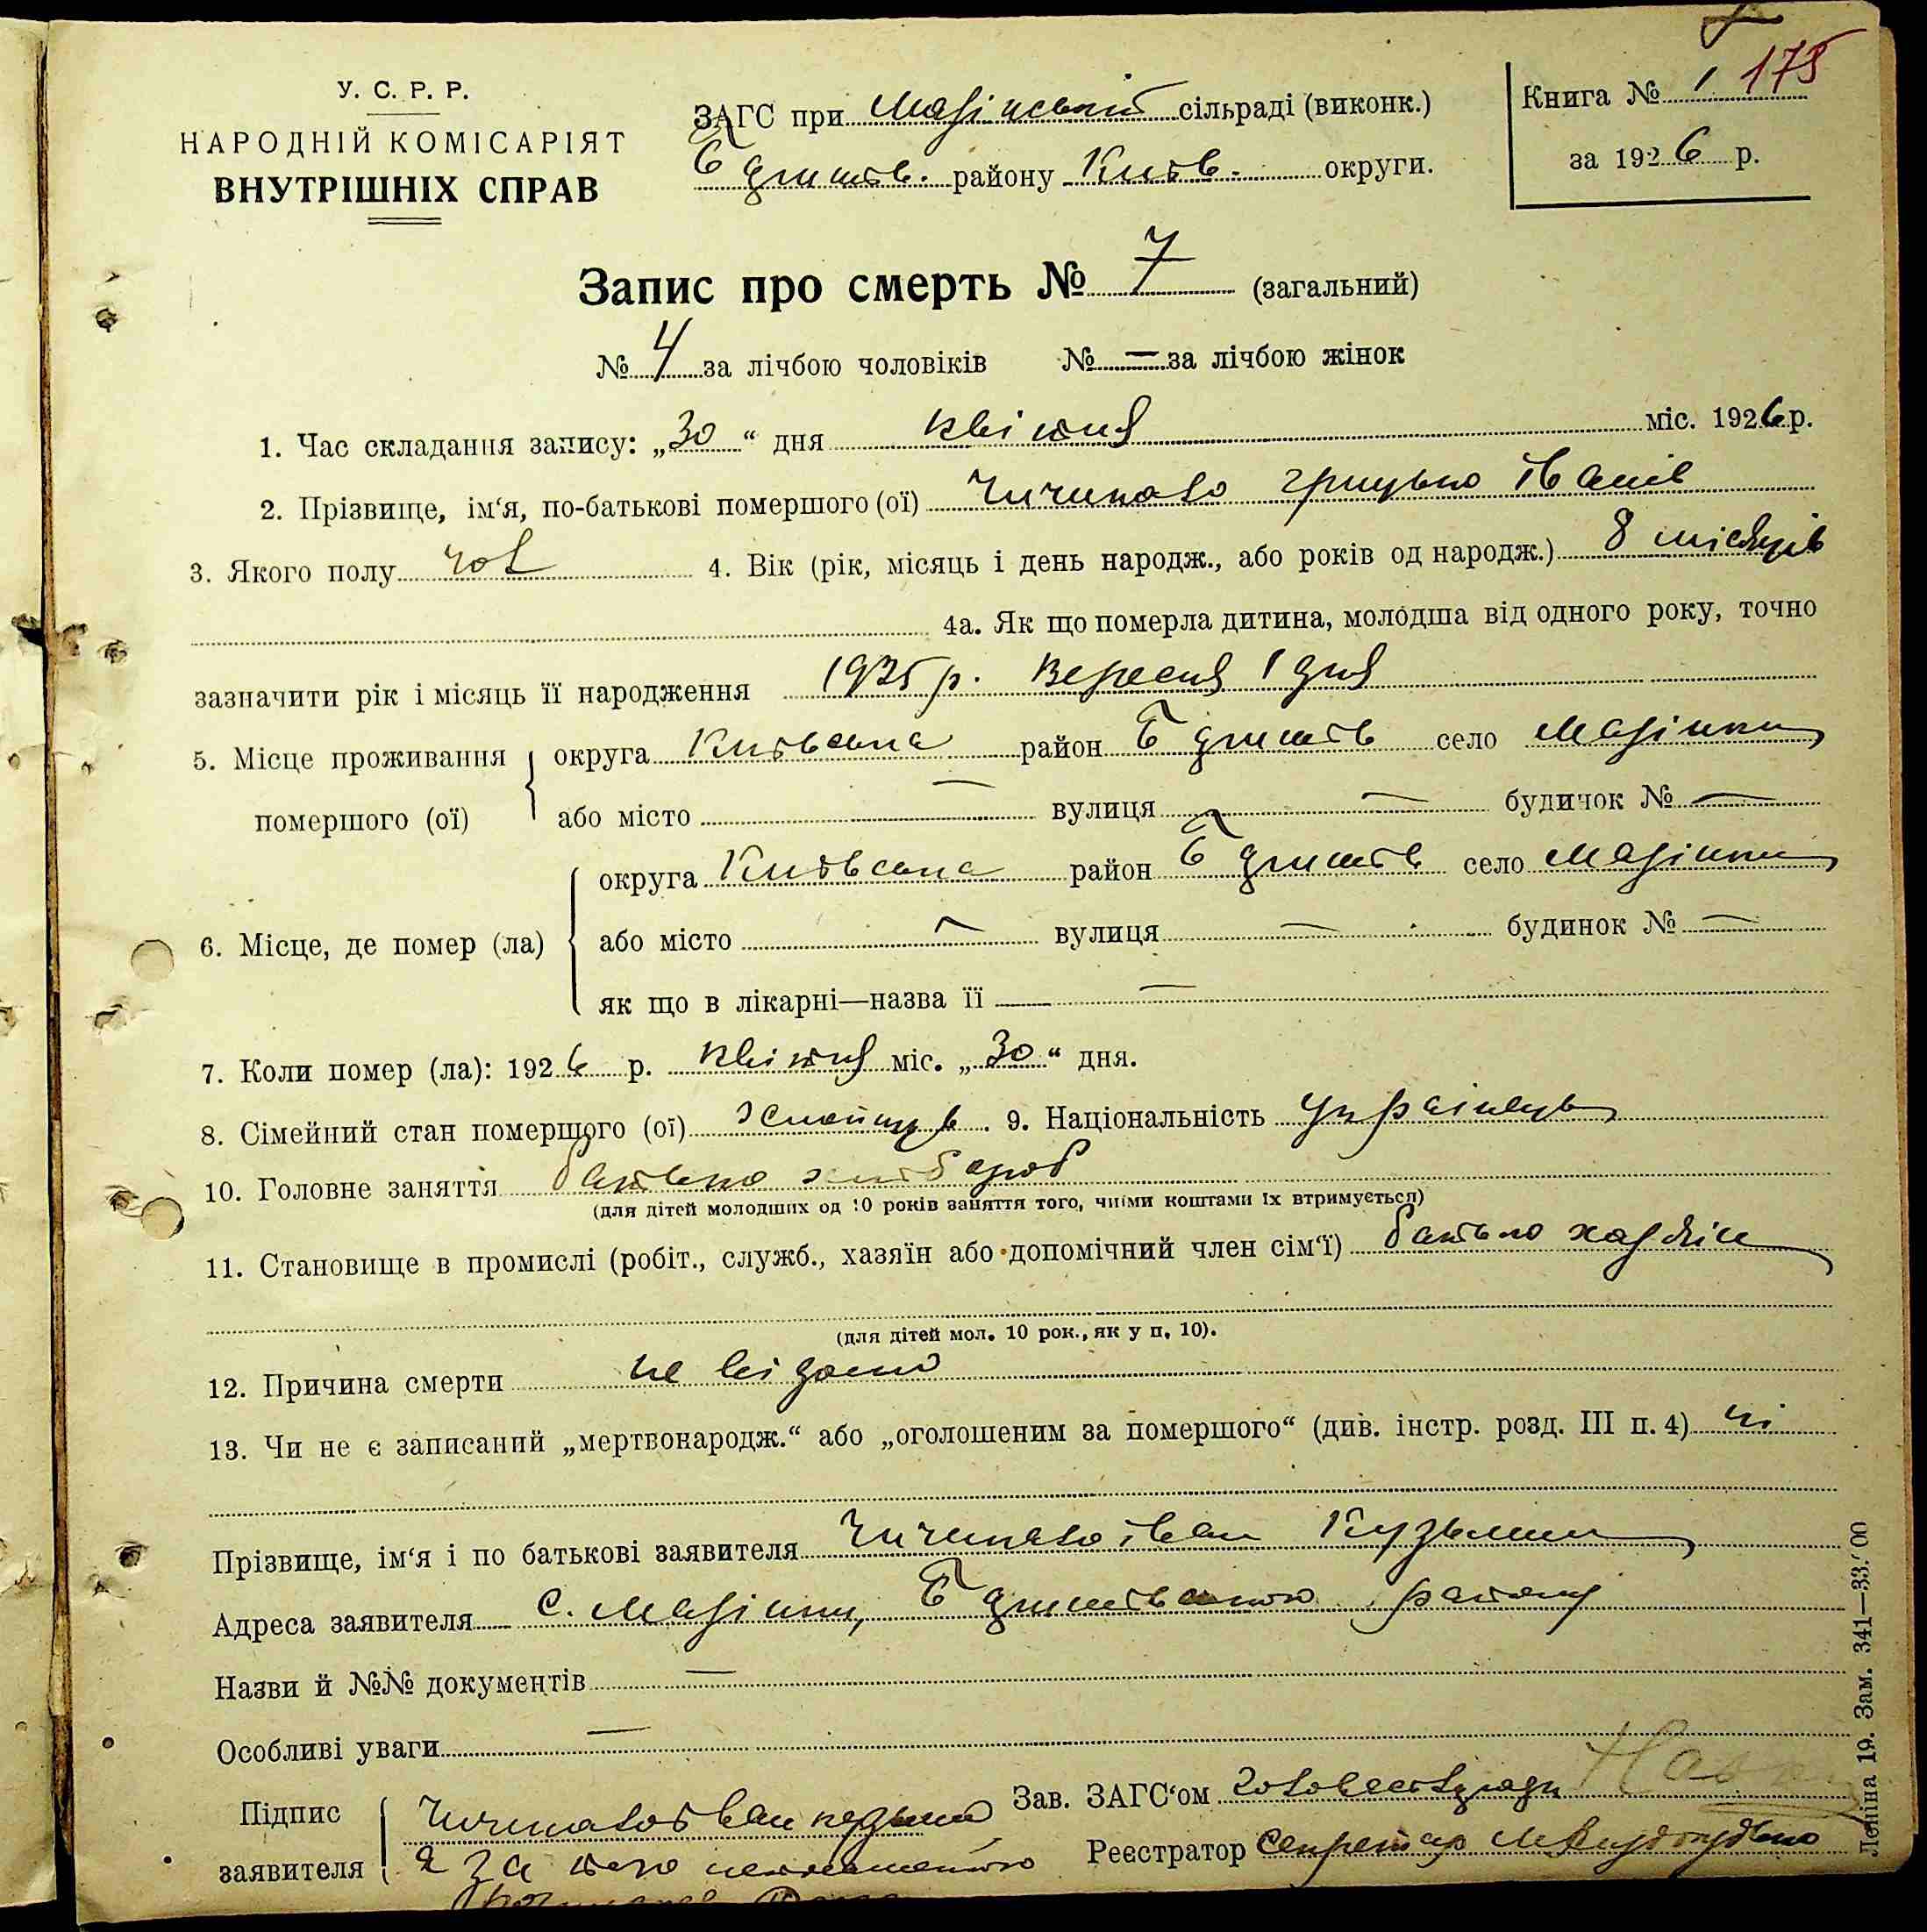 У. С. Р. Р.
НАРОДНІЙ КОМІСАРІЯТ
ВНУТРІШНІХ СПРАВ
ЗАГС при Мазінській сільраді (виконк.)
району Київ. округи.
Книга № 1 178
за 1926 р.
Запис про смерть № 7 (загальний)
№ 4 за лічбою чоловіків № — за лічбою жінок
1. Час складання запису: „30“ дня квітня міс. 1926 р.
2. Прізвище, ім‘я, по-батькові помершого (ої) Чичикало Грицько Іванів
3. Якого полу чол 4. Вік (рік, місяць і день народж., або років од народж.) 8 місяців
4а. Як що померла дитина, молодша від одного року, точно
зазначити рік і місяць її народження 1925 р. Вересня 1 дня
5. Місце проживання помершого (ої) округа Київська район село Мазінки
або місто — вулиця — будичок № —
6. Місце, де помер (ла) округа Київська район село Мазінки
або місто — вулиця — будинок № —
як що в лікарні—назва її —
7. Коли помер (ла): 1926 р. квітня міс. „30“ дня.
8. Сімейний стан померщого (ої) 9. Національність Українець
10. Головне заняття батько хлібароб
(для дітей молодших од 10 років заняття того, чиїми коштами їх втримується)
11. Становище в промислі (робіт., служб., хазяїн або допомічний член сім‘ї) батько хазяїн
(для дітей мол. 10 рок., як у п. 10).
12. Причина смерти не відомо
13. Чи не є записаний „мертвонародж.“ або „оголошеним за помершого“ (див. інстр. розд. III п. 4) ні
Прізвище, ім‘я і по батькові заявителя Чичикало Іван Кузьмин
Адреса заявителя с. Мазінки, району
Назви й №№ документів —
Особливі уваги —
Підпис заявителя Чичикало Іван
а за його неписьменного
Зав. ЗАГС‘ом Голова сельради
Реєстратор Секретар
Леніна 19. Зам. 341—33.′00